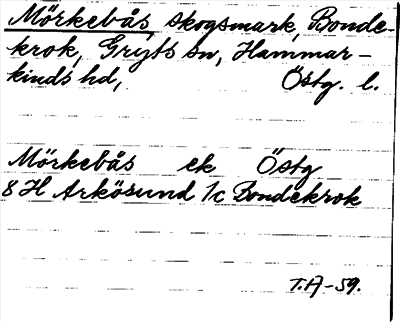 Mörkebås, skogsmark, Bonde-
krok, Gryts sn, Hammar-
kinds hd, Östg. l.
Mörkebås ek Östg
8 H Arkösund 1c Bondekrok
T.A-59.